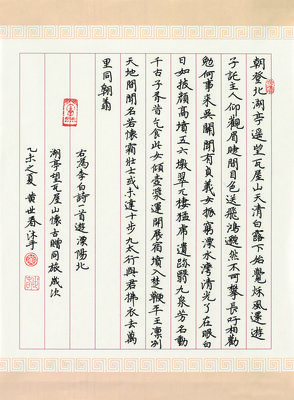 朝登北湖亭遥望瓦屋山天清白露下始覺秌風還遊
子託主人仰觀眉睫間目色送飛鴻邈然不可攀長吁相勸
勉何事来吴關聞有貞義女振窮溧水灣清光了在眼白
日如披顔高墳五六墩崒兀棲猛虎遺跡翳九泉芳名動
千古子胥昔乞食此女傾壺漿運開展宿憤入楚鞭平王凛冽
天地間聞名若懷霜壮士或未達十步九太行與君拂衣去萬
里同翱翔
右為李白詩一首遊溧陽北
湖亭望瓦屋山懷古贈同旅歲次
乙未之夏 黄世春沐手